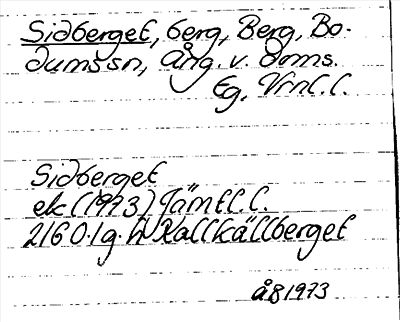 Sidberget, berg, Berg, Bo-
dumssn, Ång. v. doms.
Eg, Vrnl. l.
Sidberget
ek (1973) Jämtl. l.
2160. lg. N Kallkällberget
ÅB 1973